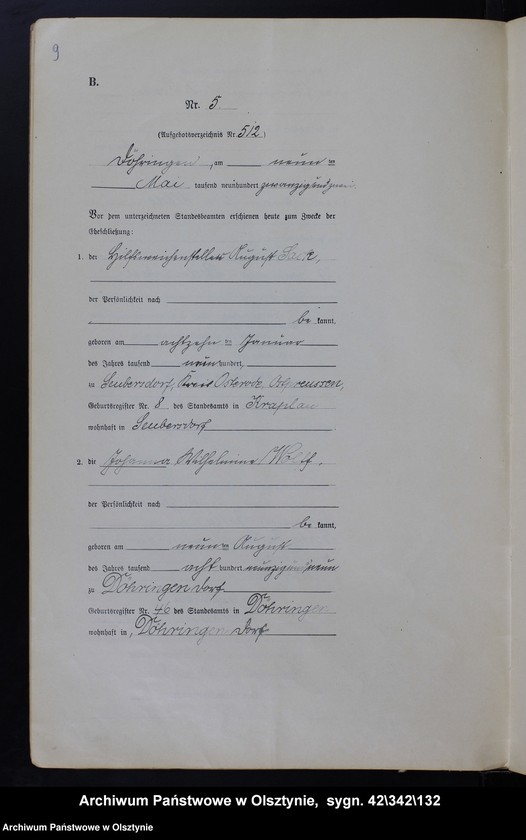 9
B.
Nr. 5
(Aufgebotsverzeichnis Nr. 5/2)
Döhringen, am neun ten
Mai tausend neunhundert zwanzigundzwei
Vor dem unterzeichneten Standesbeamten erschienen heute zum Zwecke der
Eheschließung:
1. der Hilfsweichensteller August
der Persönlichkeit nach
be kannt,
geboren am achtzehn ten Januar
des Jahres tausend neun hundert,
zu Seubersdorf, Kreis Osterode, Ostpreussen,
Geburtsregister Nr. 8 des Standesamts in Kraplau
wohnhaft in Seubersdorf
2. die Johanna Wilhelmine
der Persönlichkeit nach
be kannt,
geboren am neun ten August
des Jahres tausend acht hundert neunzigundneun
zu Döhringen Dorf
Geburtsregister Nr. 46 des Standesamts in Döhringen
wohnhaft in, Döhringen Dorf
Archiwum Państwowe w Olsztynie, sygn. 42\342\132
Archiwum Państwowe w Olsztynie